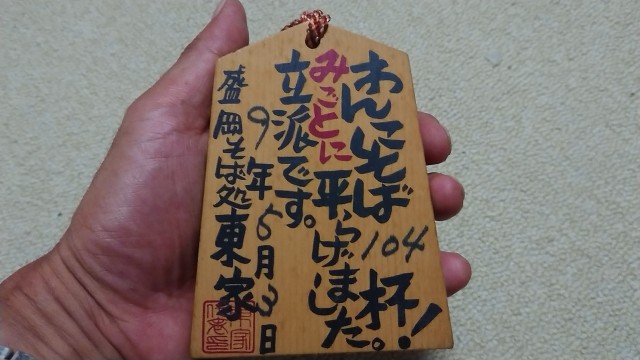 わんこそば104杯!
みごとに平らげました。
立派です。
9年5月3日
盛岡そば処東家